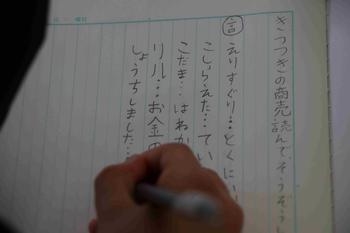 きつつきの商売読んで、そうぞうし
言 えりすぐり…とくにい
こしらえた…てい
こだま…はねか
リル…お金の
しょうちしました…